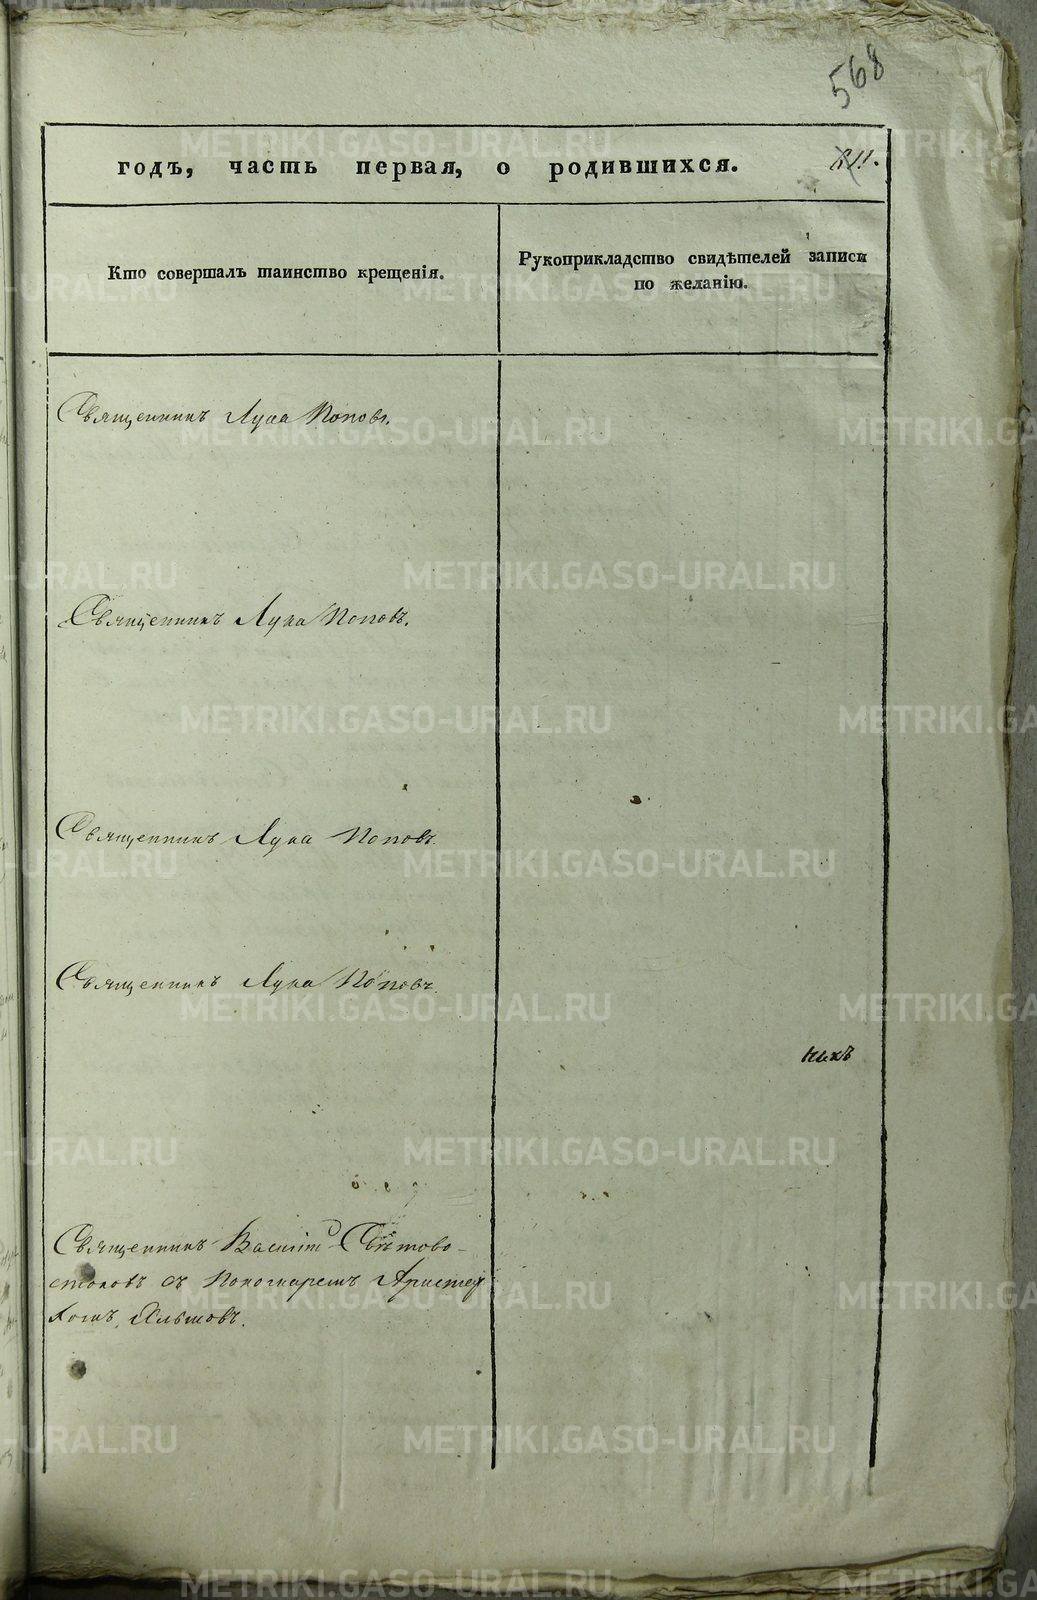 568
годъ, часть первая, о родившихся.
Кто совершалъ таинство крещенія.
Рукоприкладство свидѣтелей записи
по желанію.
Священникъ Лука Поповъ.
Священникъ Лука Поповъ.
Священникъ Лука Поповъ.
Священникъ Лука Поповъ.
Священникъ Василій Свѣтово-
стоковъ съ Пономаремъ
METRIKI.GASO-URAL.RU